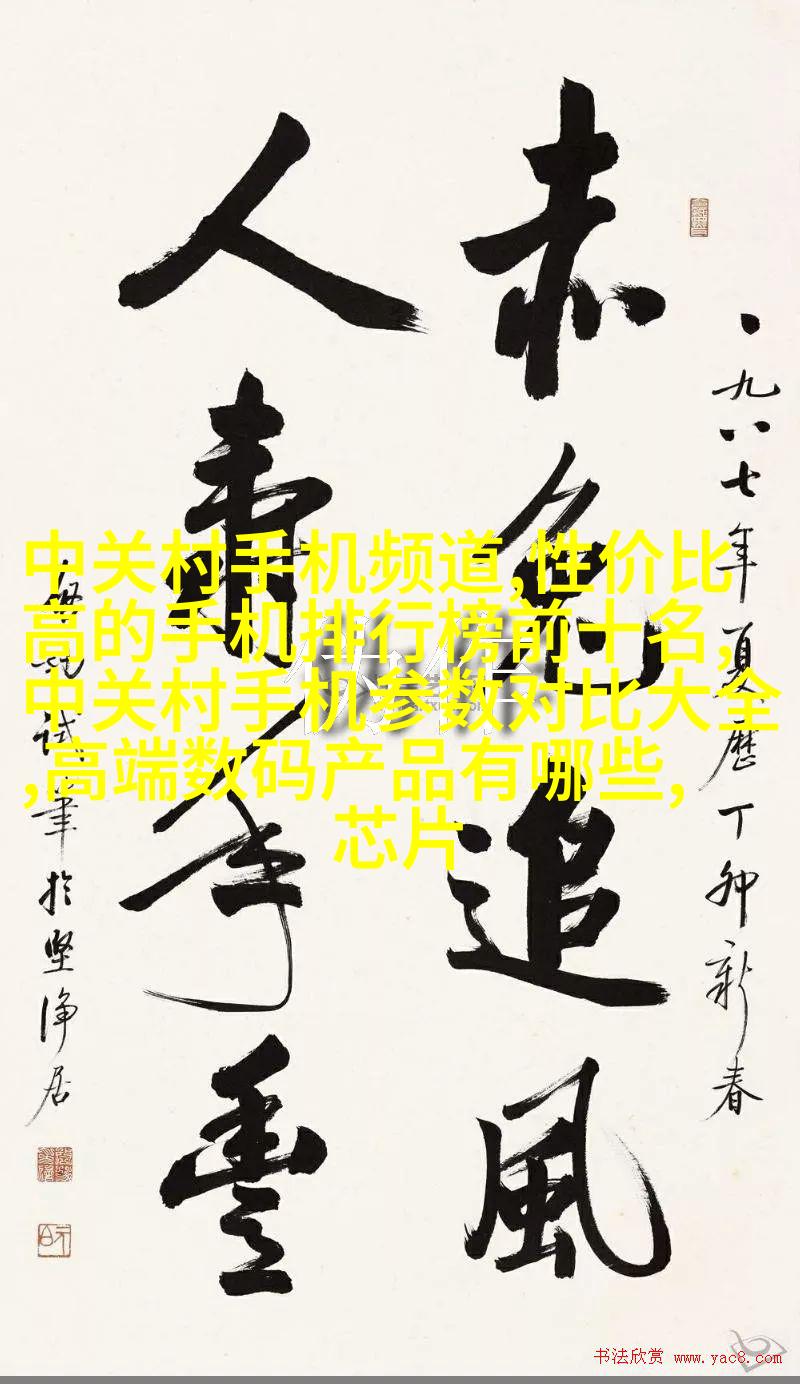 一九八七年夏歷丁卯新春
赤兔追風
人壽年豐
啟功試筆於堅净居
中关村手机频道,性价比
高的手机排行榜前十名,
中关村手机参数对比大全
,高端数码产品有哪些,
芯片
书法欣赏 www.yac8.com